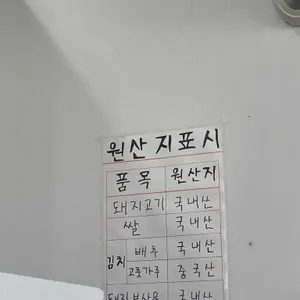 원산지표시
품목 원산지
돼지고기 국내산
쌀 국내산
김치 배추 국내산
고춧가루 중국산
돼지부산물 국내산